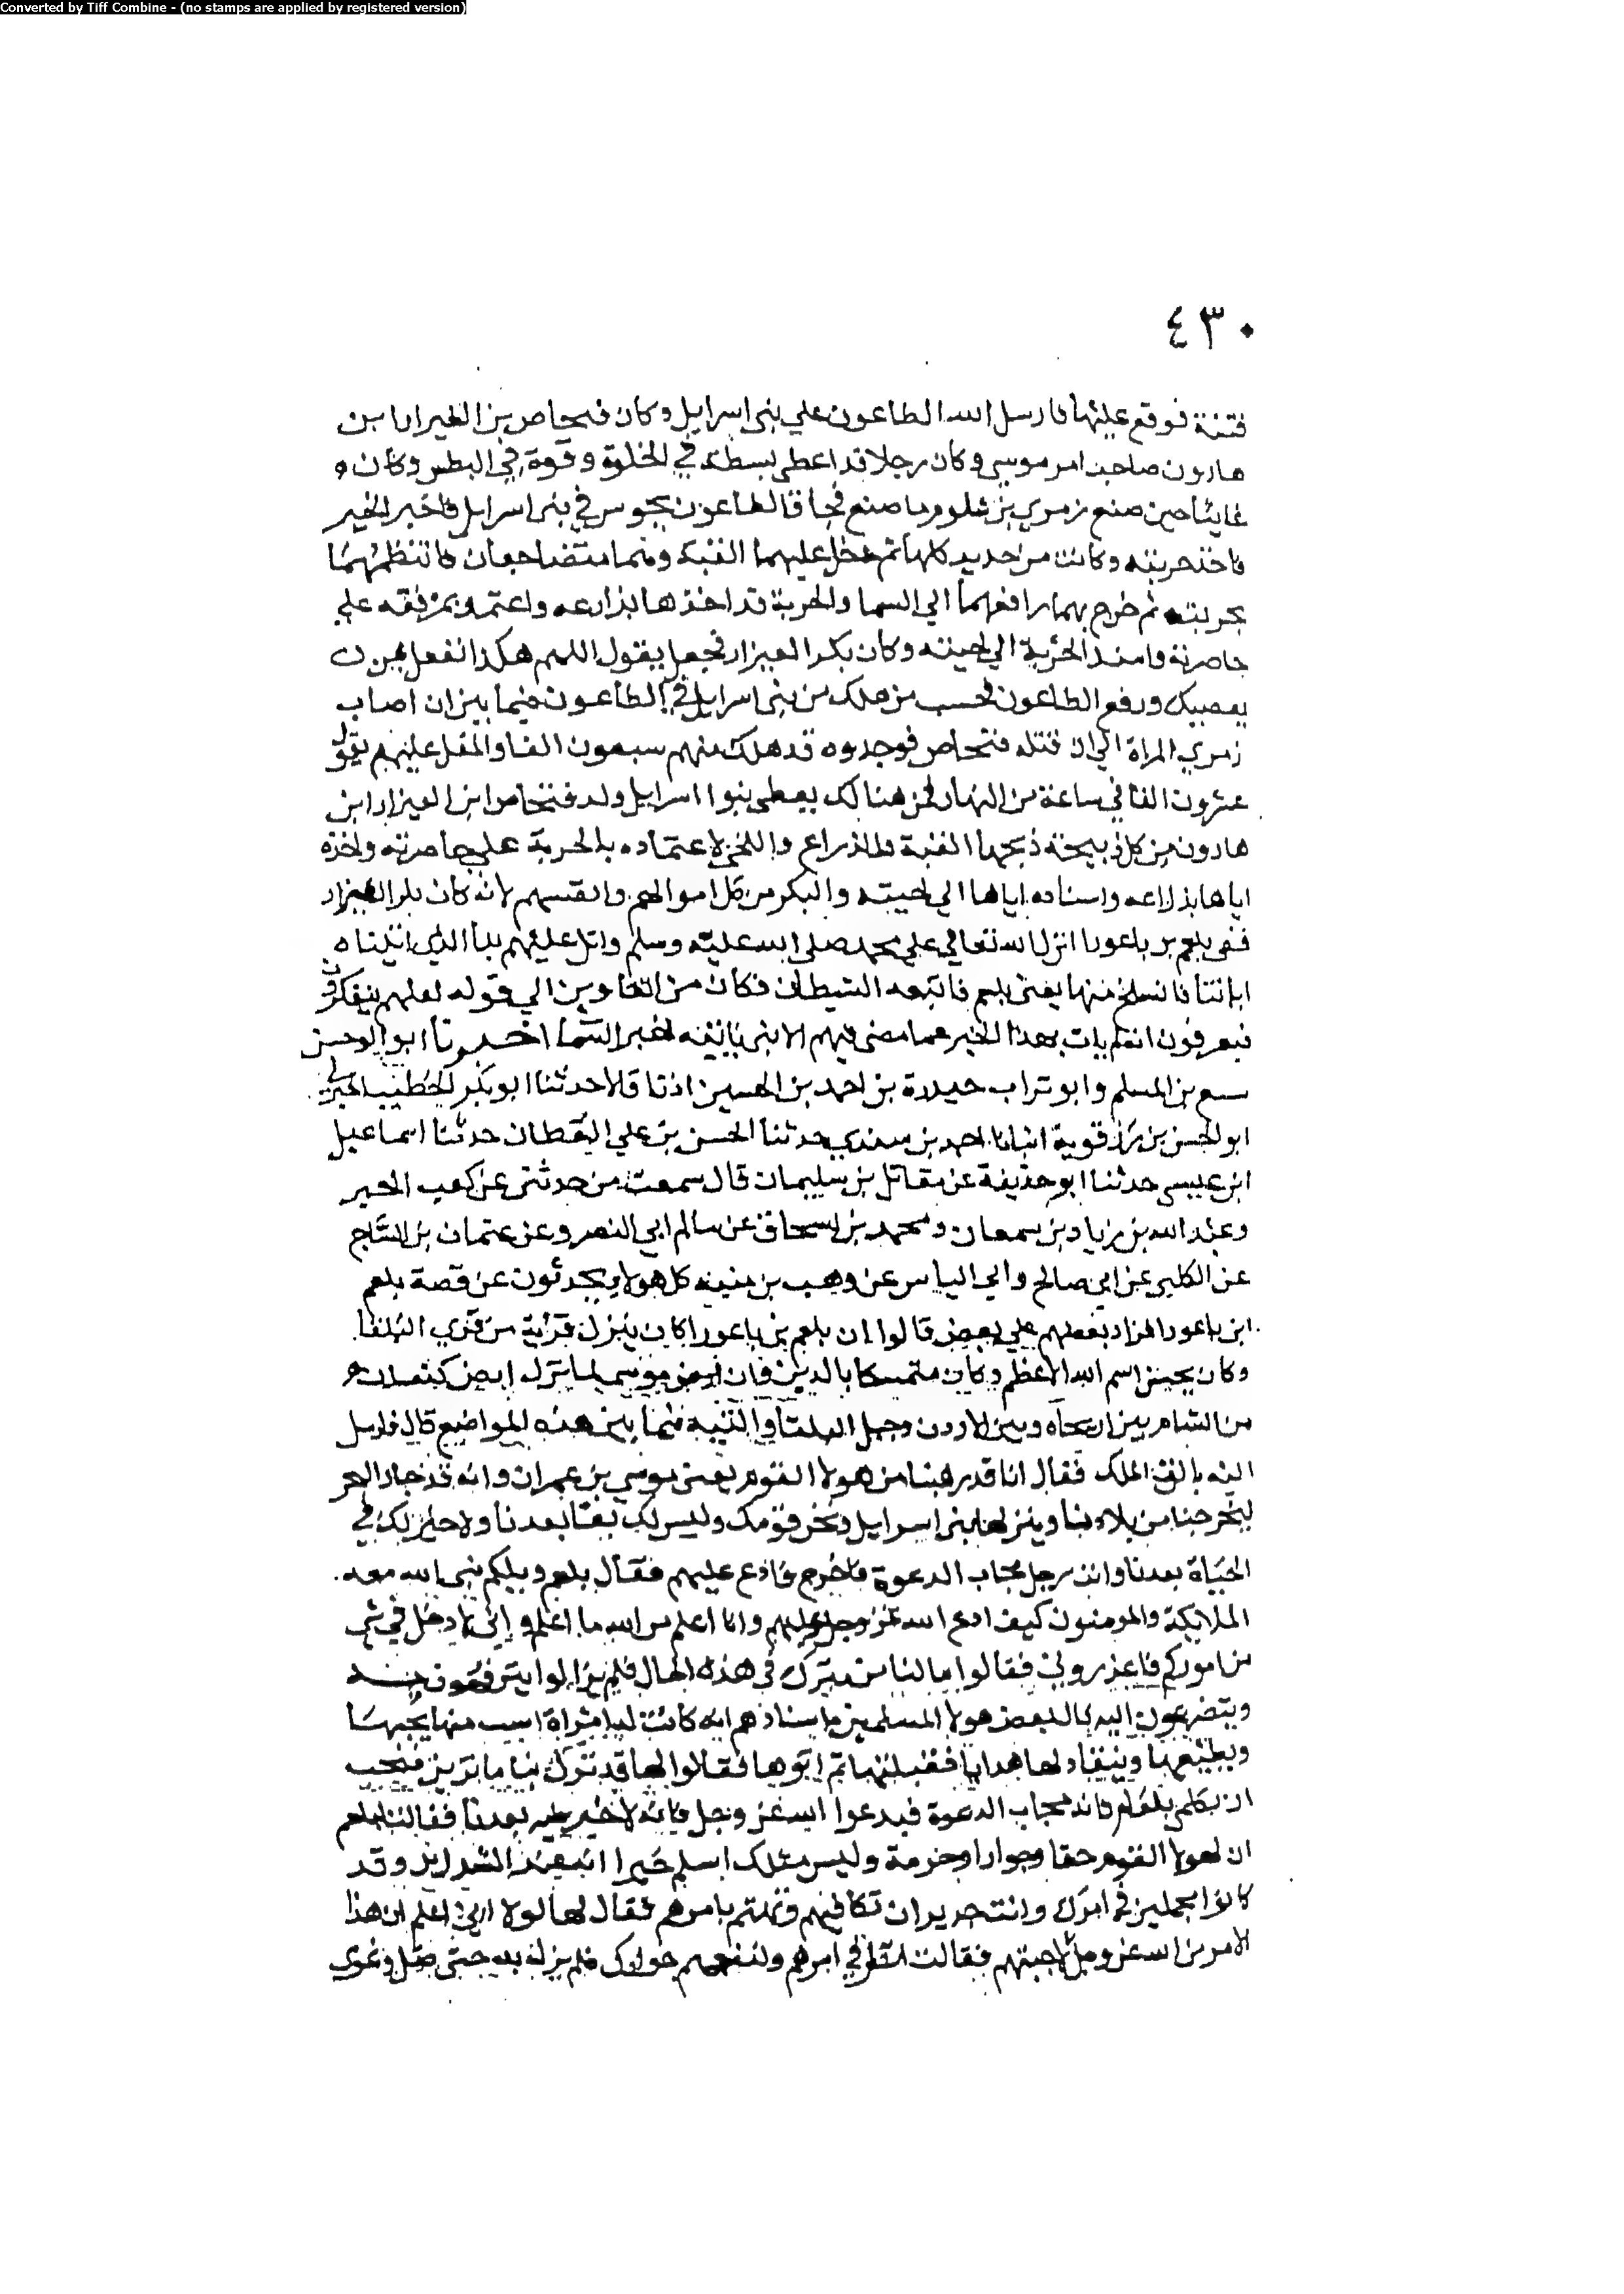 Converted by Tiff Combine - (no stamps are applied by registered version)
٤٣٠
فتنة فوقع عليها فارسل الله الطاعون علي بني اسرايل وكان فنحاص بن العيزار ابن
هارون صاحب امر موسي وكان رجلا قد اعطي بسطة في الخلق وقوة في البطس وكان
غايبا حين صنع زمري بن شلوم ما صنع فجا والطاعون يجوس في بني اسرايل فاخبر الخبر
فاخذ حربته وكانت من حديد كلها ثم دخل عليهما القبة وهما متضاجعان فانتظمهما
بحربته ثم خرج بهما رافعهما الي السما والحربة قد اخذها بذارعه واعتمد بمرفقه علي
خاصرته واسند الحربة الي لحيته وكان بكر العيزار فجعل يقول اللهم هكذا نفعل بمن
يعصيك ورفع الطاعون فحسب من هلك من بني اسرايل في الطاعون فيما بين ان اصاب
زمري المراة الي ان قتله فنحاص فوجدوه قد هلك منهم سبعون الفا والمقل عليهم يقول
عشرون الفا في ساعة من النهار فمن هنالك يعطي بنوا اسرايل ولد فنحاص ابن العيزار ابن
هارون من كل ذبيحة ذبحوها القبة والذراع واللحي لاعتماده بالحربة علي خاصرته واخذه
اياها بذراعه واسناده اياها الي لحيته والبكر من كل اموالهم وانفسهم لانه كان بكر العيزار
ففي بلعم بن باعورا انزل الله تعالي علي محمد صلي الله عليه وسلم واتل عليهم نبا الذي اتيناه
اياتنا فانسلخ منها يعني بلعم فاتبعه الشيطان فكان من الغاوين الي قوله لعلهم يتفكرون
فيعرفون انه لم يات بهذا الخبر عما مضي فيهم الا نبي ياتيه خبر السما اخبرنا ابو الحسن
بن المسلم وابو تراب حيدرة بن احمد بن الحسين اذنا قالا حدثنا ابو بكر الخطيب اخبرني
ابو الحسن بن رزقوية انبانا احمد بن سندي حدثنا الحسن بن علي القطان حدثنا اسماعيل
ابن عيسي حدثنا ابو حذيفة عن مقاتل بن سليمان قال سمعت من حدثني عن كعب الخير
وعبد الله بن زياد بن سمعان ومحمد بن اسحاق عن سالم ابي النصر وعن عثمان بن الساج
عن الكلبي عن ابي صالح وابي الياس عن وهب بن منبه كل هولاء يحدثون عن قصة بلعم
ابن باعورا فزاد بعضهم علي بعض قالوا ان بلعم بن باعورا كان ينزل قرية من قري البلقا
وكان يحسن اسم الله الاعظم وكان متمسكا بالدين وان موسي لما نزل ارض كنعان
من الشام بين اريحاه وبين الاردن وجبل البلقا والتيه فيما بين هذه المواضع قال فارسل
اليه بالق الملك فقال انا قد رهبنا من هولا القوم يعني موسي بن عمران وانه قد جاز البحر
ليخرجنا من بلادنا وينزلها بني اسرايل ونحن قومك وليس لك بقا بعدنا ولا خير لك في
الحياة بعدنا وانت رجل مجاب الدعوة فاخرج فادع عليهم فقال بلعم ويلكم نبي الله معه
الملايكة والمومنون كيف ادع الله عز وجل عليهم وانا اعلم من الله ما اعلم واني لا ادخل في شي
من اموركم فاعذروني فقالوا ما لنا من مترك في هذه الحال فلم يزالوا يترفقون
ويتضرعون اليه قال بعض هولا المسلمين باسنادهم انه كانت له امراة احب منها يحبها
ويطيعها وينقاد لها هدايا فقبلتها ثم اتوها فقالوا لها قد نزل بنا ما ترين فنحب
ان تكلمي بلعم فانه مجاب الدعوة فيدعوا الله عز وجل فانه لا خير له بعدنا فقالت لبلعم
ان لهولا القوم حقا وجوارا وحرمة وليس مثلك اسلم جيرانه عند الشدايد وقد
كانوا مجملين في امرك وانت جدير ان تكافيهم وتهتم بامرهم فقال لها لولا اني اعلم ان هذا
الامر من الله عز وجل لاجبتهم فقالت انظر في امرهم ولينفعهم جوارك فلم يزل به حتي ضل وغوي